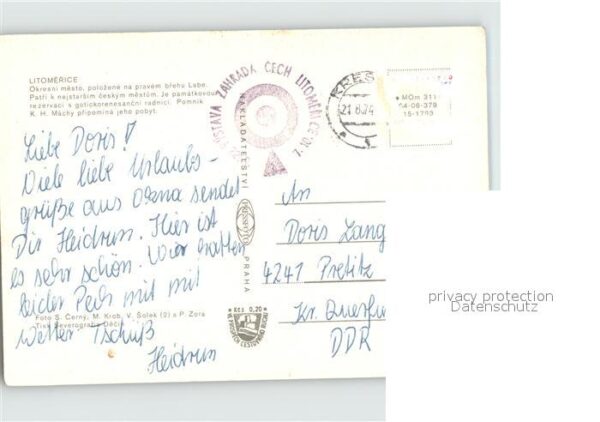 LITOMĚŘICE
Okresní město, položené na pravém břehu Labe.
Patří k nejstarším českým městům. Je památkovou
rezervací s gotickorenesanční radnicí. Pomník
K. H. Máchy připomíná jeho pobyt.
Liebe Doris!
Viele liebe Urlaubs-
grüße aus sendet
Dir Heidrun. Hier ist
es sehr schön. Wir hatten
leider Pech mit mit
Wetter. Tschüß
Heidrun
Foto S. Černý, M. Krob, V. Šolek (0) a P. Zora
Tisk Severografia Děčín
VÝSTAVA ZAHRADA ČECH LITOMĚŘICE
NAKLADATELSTVÍ
PRESSFOTO
PRAHA
Kčs 0,20
VE PROSPĚCH CESTOVNÍHO RUCHU
21.8.74
An
Doris Lang
4241 Pretitz
Kr. Querfu
DDR
privacy protection
Datenschutz